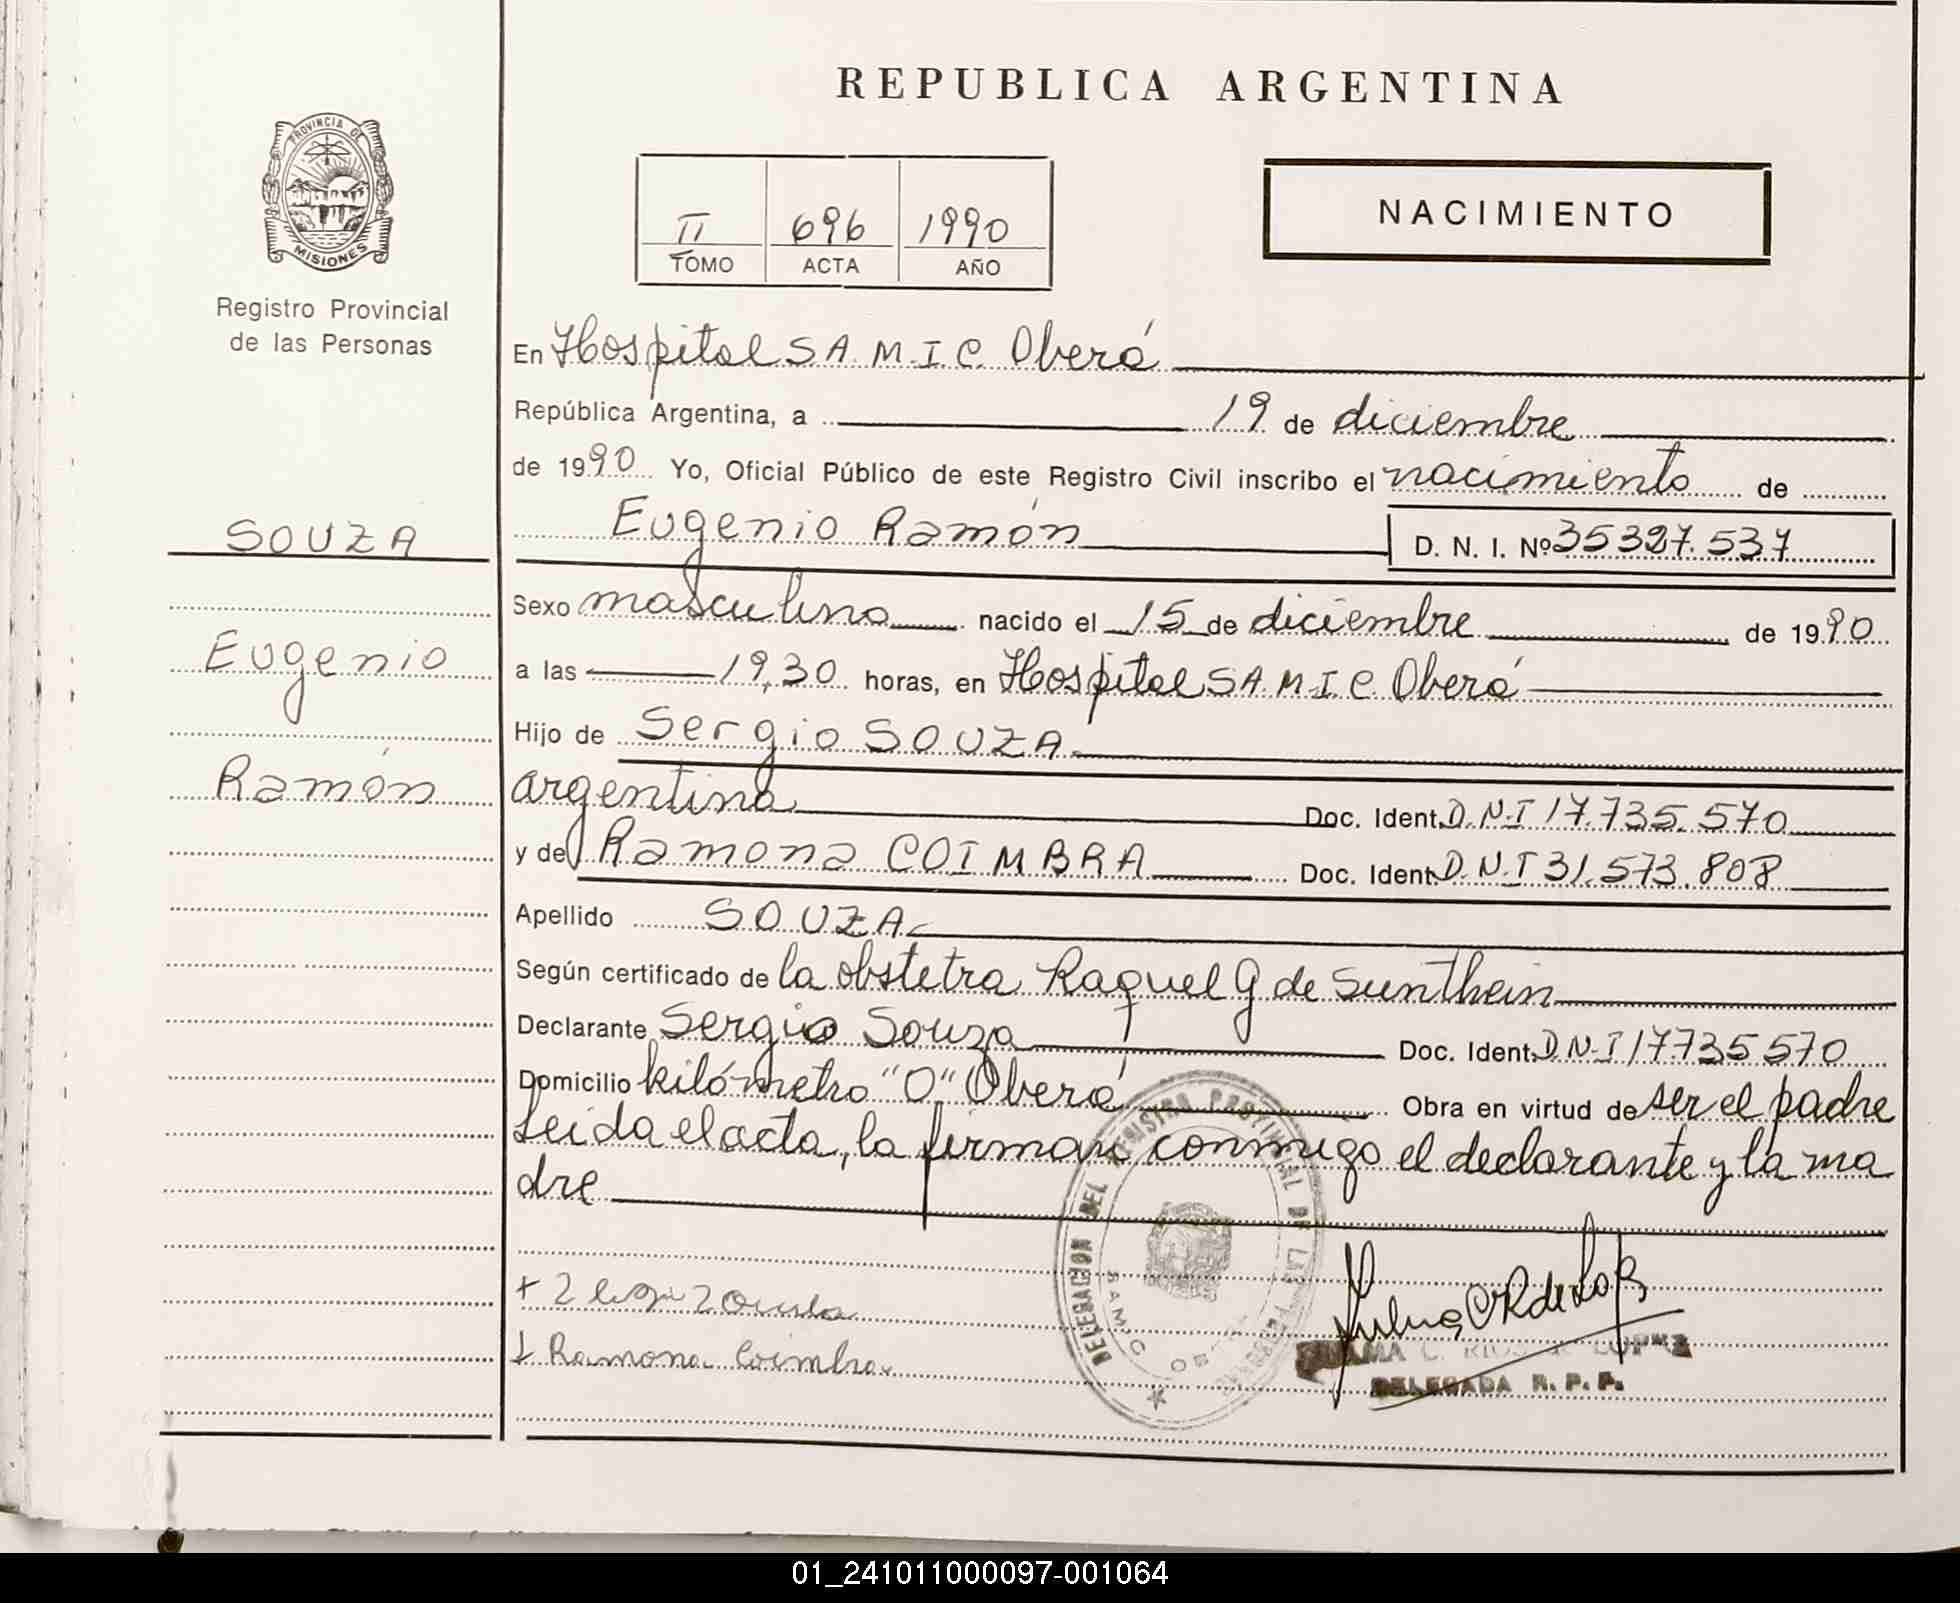 REPUBLICA ARGENTINA
PROVINCIA DE
MISIONES
Registro Provincial
de las Personas
II 696 1990
TOMO ACTA AÑO
NACIMIENTO
En Hospital S.A.M.I.C. Oberá
República Argentina, a 19 de diciembre
de 1990 Yo, Oficial Público de este Registro Civil inscribo el nacimiento de
SOUZA
Eugenio Ramón D. N. I. Nº 35327.537
Sexo masculino nacido el 15 de diciembre de 1990
Eugenio
a las 19,30 horas, en Hospital S.A.M.I.C. Oberá
Hijo de Sergio SOUZA
Ramón
argentina Doc. Ident. D.N.I 17.735.570
y de Ramona COIMBRA Doc. Ident. D.N.I 31.573.808
Apellido SOUZA
Según certificado de la obstetra Raquel G de Sunthein
Declarante Sergio Souza Doc. Ident. D.N.I 17.735570
Domicilio kilómetro "0" Oberá Obra en virtud de ser el padre
Leida el acta, la firman conmigo el declarante y la ma
dre
DELEGACION DEL REGISTRO PROVINCIAL DE LAS PERSONAS
SAMIC
Ramona Coimbra
LOPEZ
DELEGADA R. P. P.
01_241011000097-001064